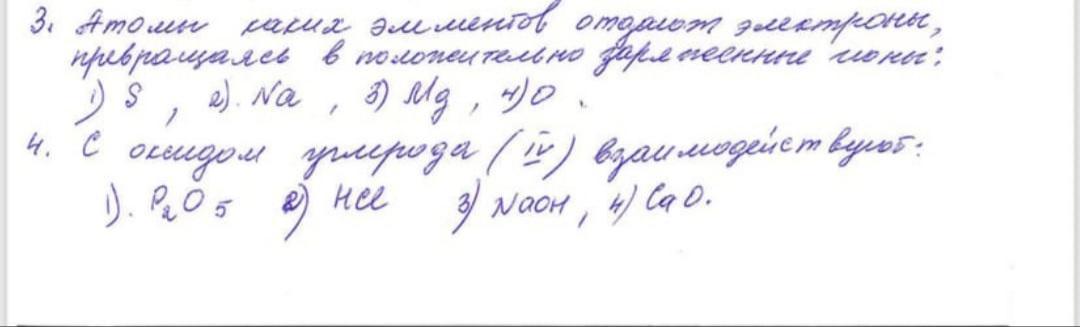 3. Атомы каких элементов отдают электроны,
превращаясь в положительно заряженные ионы:
1) S , 2). Na , 3) Mg , 4) O .
4. С оксидом углерода (IV) взаимодействуют:
1). P₂O₅ 2) HCl 3) NaOH , 4) CaO.